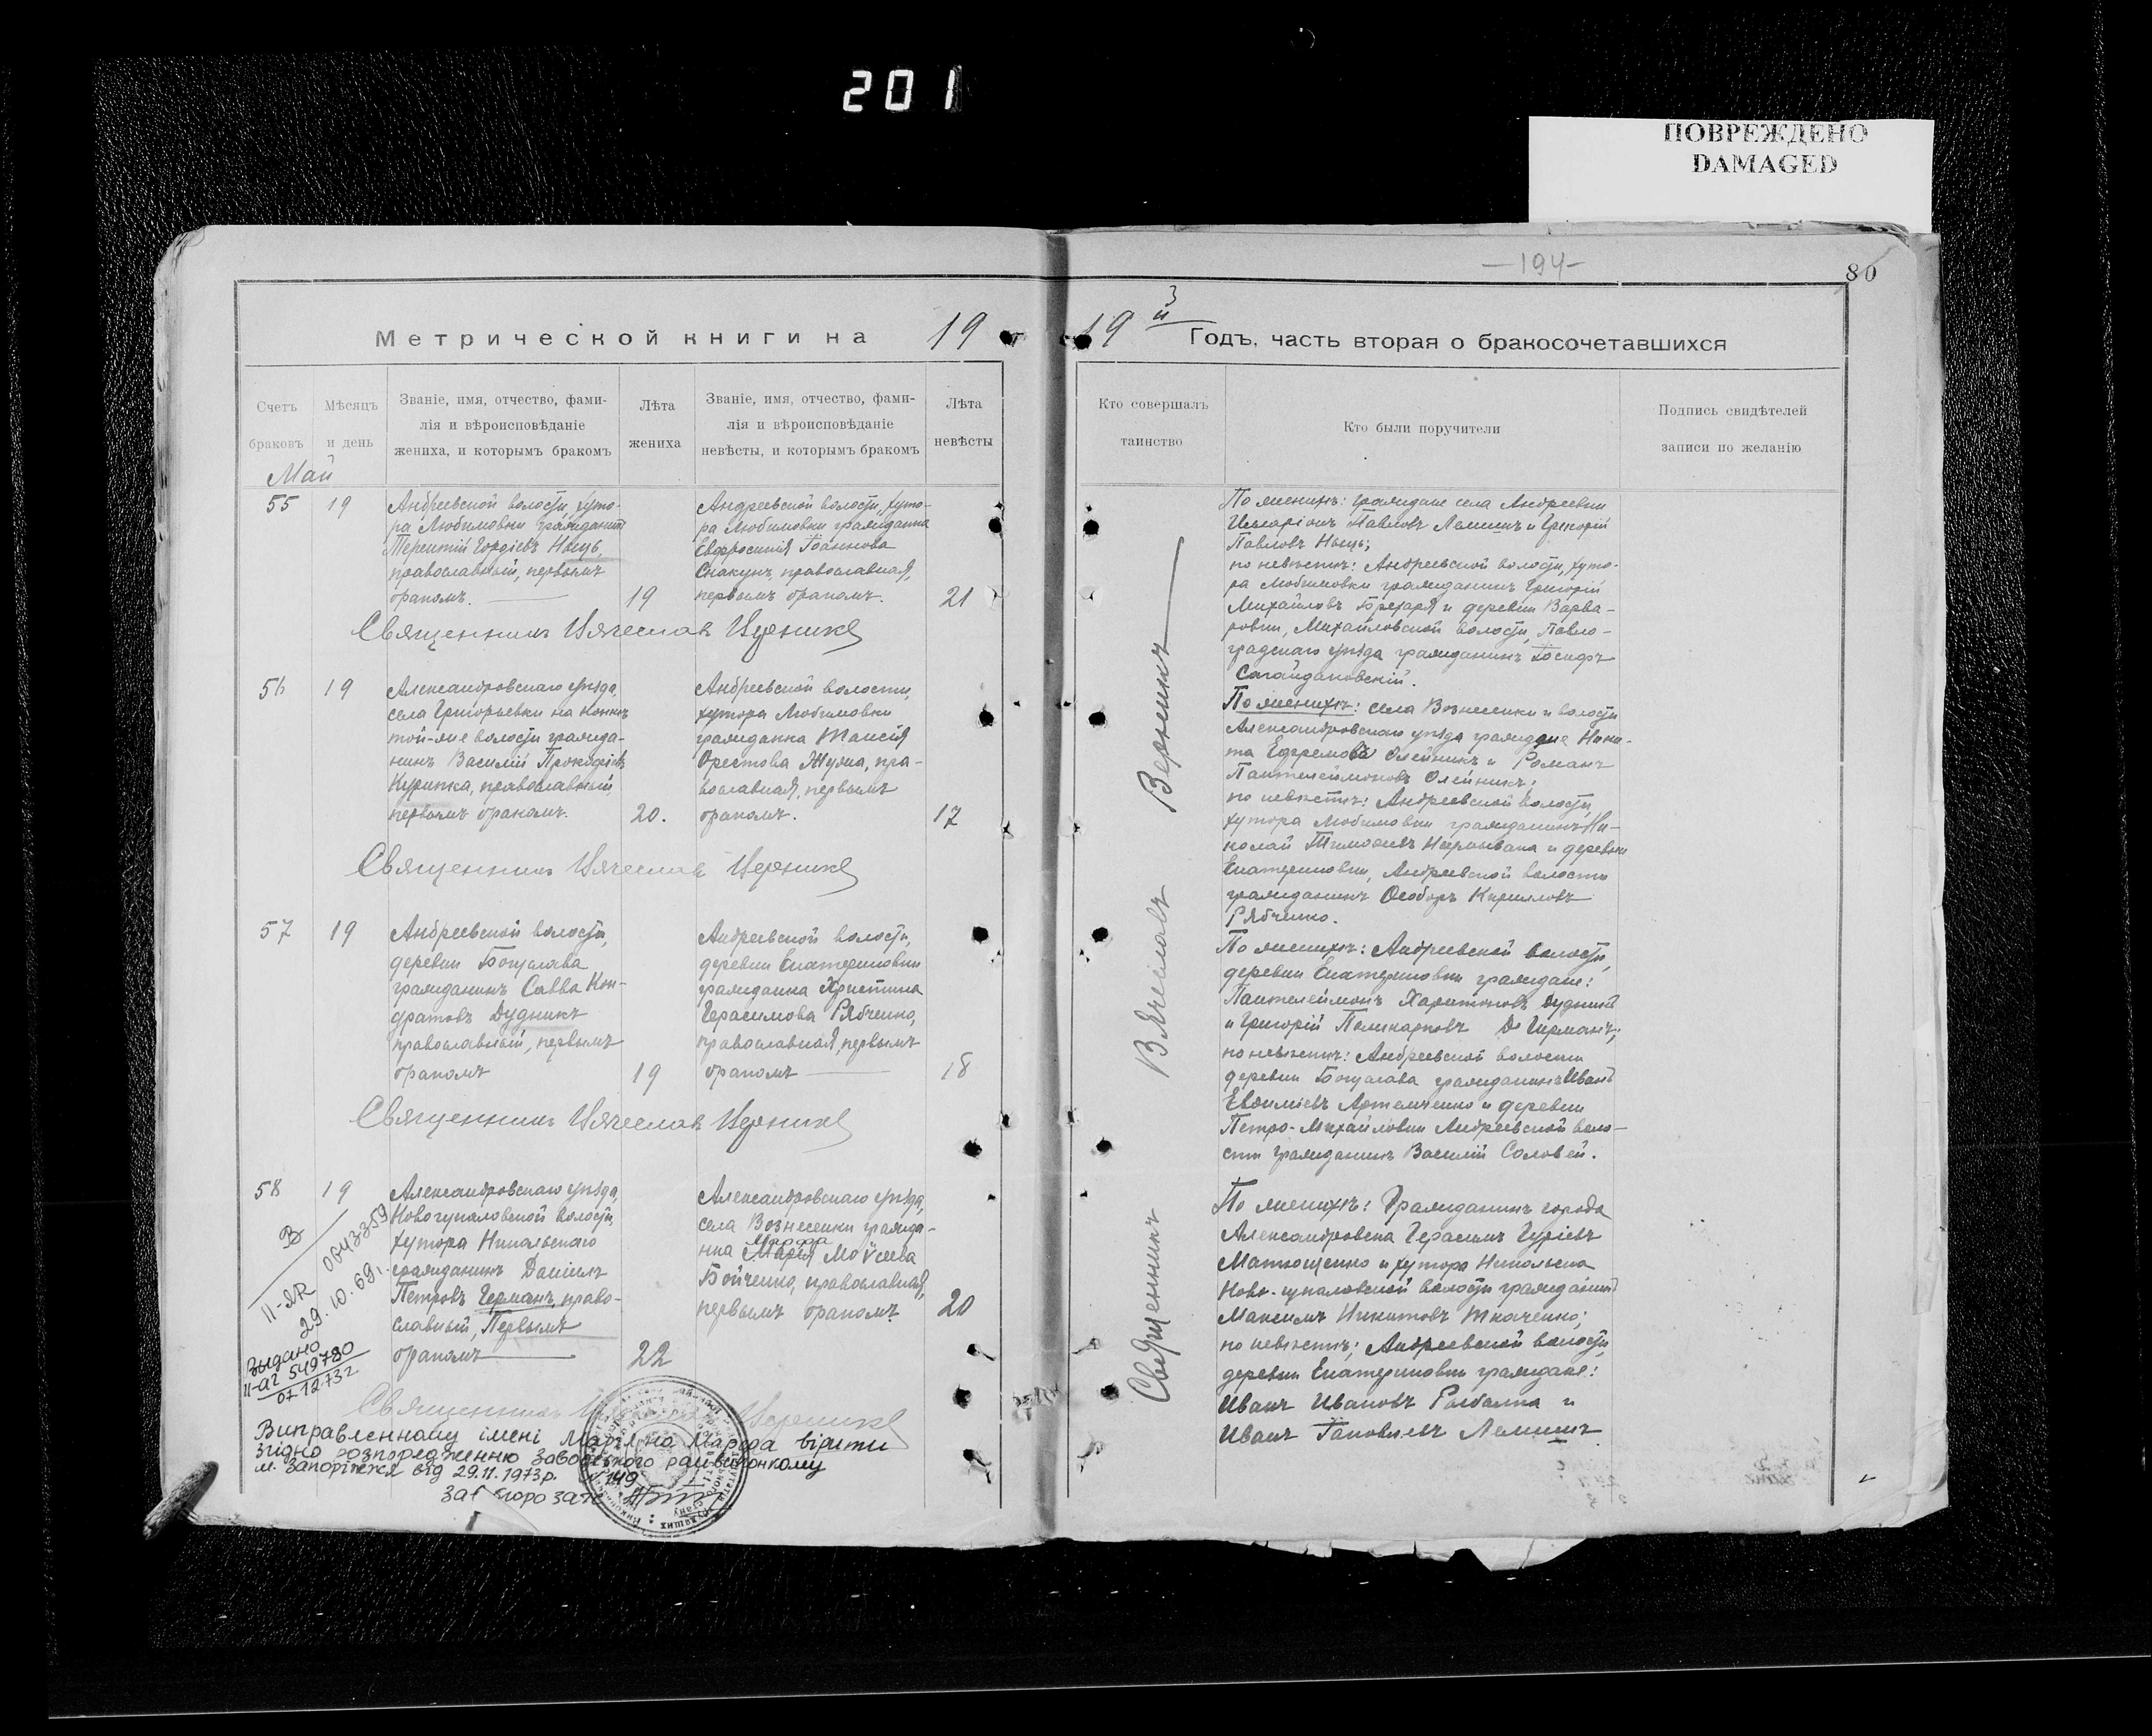 201
ПОВРЕЖДЕНО
DAMAGED
-194-
80
Метрической книги на 19
19 Годъ, часть вторая о бракосочетавшихся
Счетъ браковъ
Мѣсяцъ и день
Званіе, имя, отчество, фами-
лія и вѣроисповѣданіе
жениха, и которымъ бракомъ
Лѣта жениха
Званіе, имя, отчество, фами-
лія и вѣроисповѣданіе
невѣсты, и которымъ бракомъ
Лѣта невѣсты
Кто совершалъ таинство
Кто были поручители
Подпись свидѣтелей
записи по желанію
Май
55 19
Андреевской волости, хуто-
ра Любимовки гражданинъ
Терентій Гордіевъ Носць,
православный, первымъ
бракомъ.
19
Андреевской волости, хуто-
ра Любимовки гражданка
Евфросинія Іоаннова
православная,
первымъ бракомъ.
21
Священникъ Вячеславъ Верникъ
56 19
Александровскаго уѣзда,
села Григорьевки на Конкѣ
той-же волости гражда-
нинъ Василій Прокофіевъ
Курипка, православный,
первымъ бракомъ.
20.
Андреевской волости,
хутора Любимовки
гражданка Таисія
Орестова Жула, пра-
вославная, первымъ
бракомъ.
17
Священникъ Вячеславъ Верникъ
57 19
Андреевской волости,
деревни Богуслава
гражданинъ Савва Кон-
дратовъ Дудникъ
православный, первымъ
бракомъ
19
Андреевской волости,
деревни Екатериновки
гражданка Христина
Герасимова Рябченко,
православная, первымъ
бракомъ
18
Священникъ Вячеславъ Верникъ
58 19
Александровскаго уѣзда,
Новогупаловской волости,
хутора Никольскаго
гражданинъ Даніилъ
Петровъ Германъ, право-
славный, Первымъ
бракомъ
22
Александровскаго уѣзда,
села Вознесенки гражда-
Марфа
нка Марія Моѵсеева
Бойченко, православная,
первымъ бракомъ.
20
II-ЯR 0043359
29.10.69г.
Выдано
II-АГ 549780
07 12 73г
Священникъ Вячеславъ Верникъ
Виправленному імені Марія на Марфа вірити
згідно розпорядженню Заводського райвиконкому
м. Запоріжжя від 29.11.1973р. №149
Зав бюро загс
Священникъ Вячеславъ Верникъ
По женихѣ: граждане села Андреевки
Иларіонъ Павловъ Лемишъ и Григорій
Павловъ Носць;
по невѣстѣ: Андреевской волости, хуто-
ра Любимовки гражданинъ Григорій
Михайловъ и деревни Варва-
ровки, Михайловской волости, Павло-
градскаго уѣзда гражданинъ Іосифъ
Сагайдаковскій.
По женихѣ: села Вознесенки и волости
Александровскаго уѣзда граждане Ники-
та Ефремовъ Олейникъ и Романъ
Пантелеймоновъ Олейникъ;
по невѣстѣ: Андреевской волости,
хутора Любимовки гражданинъ Ни-
колай Тимофеевъ и деревни
Екатериновки, Андреевской волости
гражданинъ Ѳеодоръ Кирилловъ
Рябченко.
По женихѣ: Андреевской волости,
деревни Екатериновки граждане:
Пантелеймонъ Харитоновъ Дудникъ
и Григорій Поликарповъ Германъ;
по невѣстѣ: Андреевской волости
деревни Богуслава гражданинъ Иванъ
Евѳиміевъ Артемченко и деревни
Петро-Михайловки Андреевской воло-
сти гражданинъ Василій Соловей.
По женихѣ: Гражданинъ города
Александровска Герасимъ Гуріевъ
Матющенко и хутора Никольска
Ново-гупаловской волости гражданинъ
Максимъ Никитовъ Ткаченко;
по невѣстѣ: Андреевской волости,
деревни Екатериновки граждане:
Иванъ Ивановъ Рыбалка и
Иванъ Іаковлевъ Лемишъ